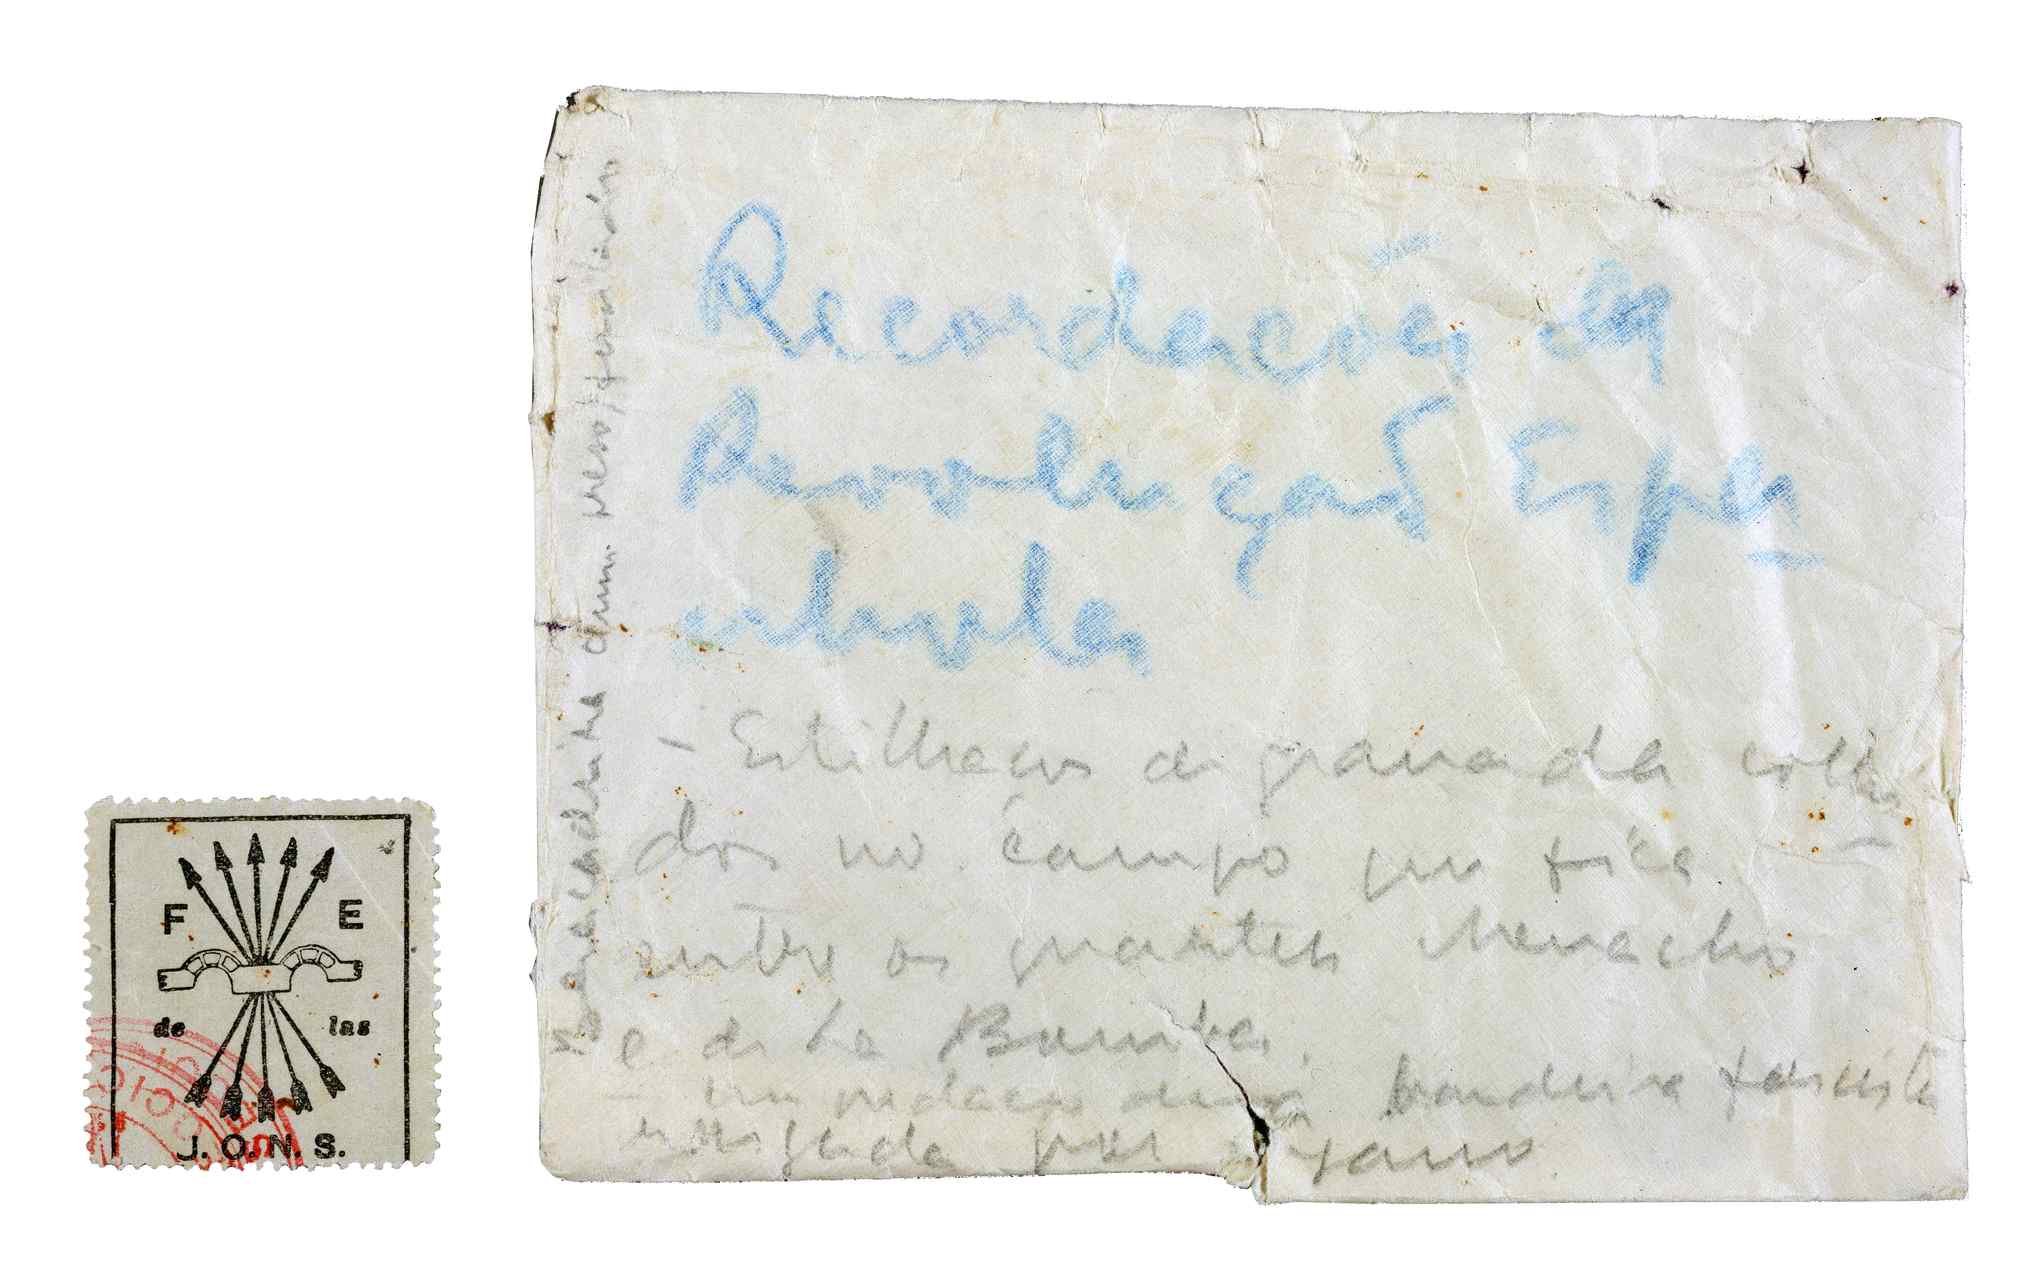 F E
de las
J. O. N. S.
Recordações da
Revolução Espa
nhola
- Estilhaços de granada colhi
dos no campo que fica
entre os quarteis Menacho
e de La Bomba.
- um pedaço duma bandeira fascista
por
duma